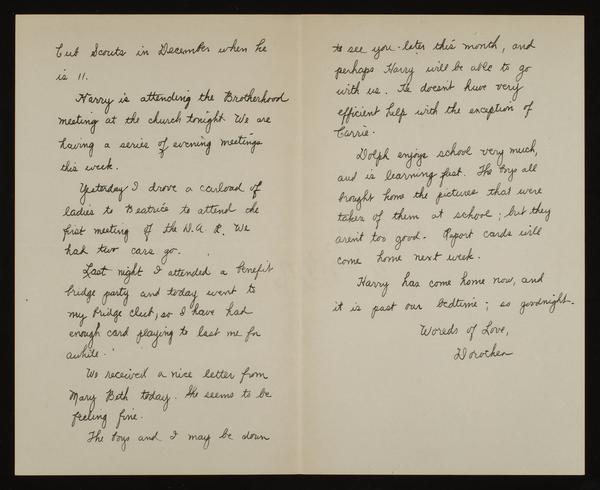 Cub Scouts in December when he
is 11.
Harry is attending the Brotherhood
meeting at the church tonight. We are
having a series of evening meetings
this week.
Yesterday I drove a carload of
ladies to Beatrice to attend the
first meeting of the D.A.R. We
had two cars go.
Last night I attended a benefit
bridge party and today went to
my bridge club, so I have had
enough card playing to last me for
awhile.
We received a nice letter from
Mary Beth today. She seems to be
feeling fine.
The boys and I may be down
to see you later this month, and
perhaps Harry will be able to go
with us. He doesn't have very
efficient help with the exception of
Carrie.
Dolph enjoys school very much,
and is learning fast. The boys all
brought home the pictures that were
taken of them at school; but they
aren't too good. Report cards will
come home next week.
Harry has come home now, and
it is past our bedtime; so goodnight.
Woreds of Love,
Dorothea